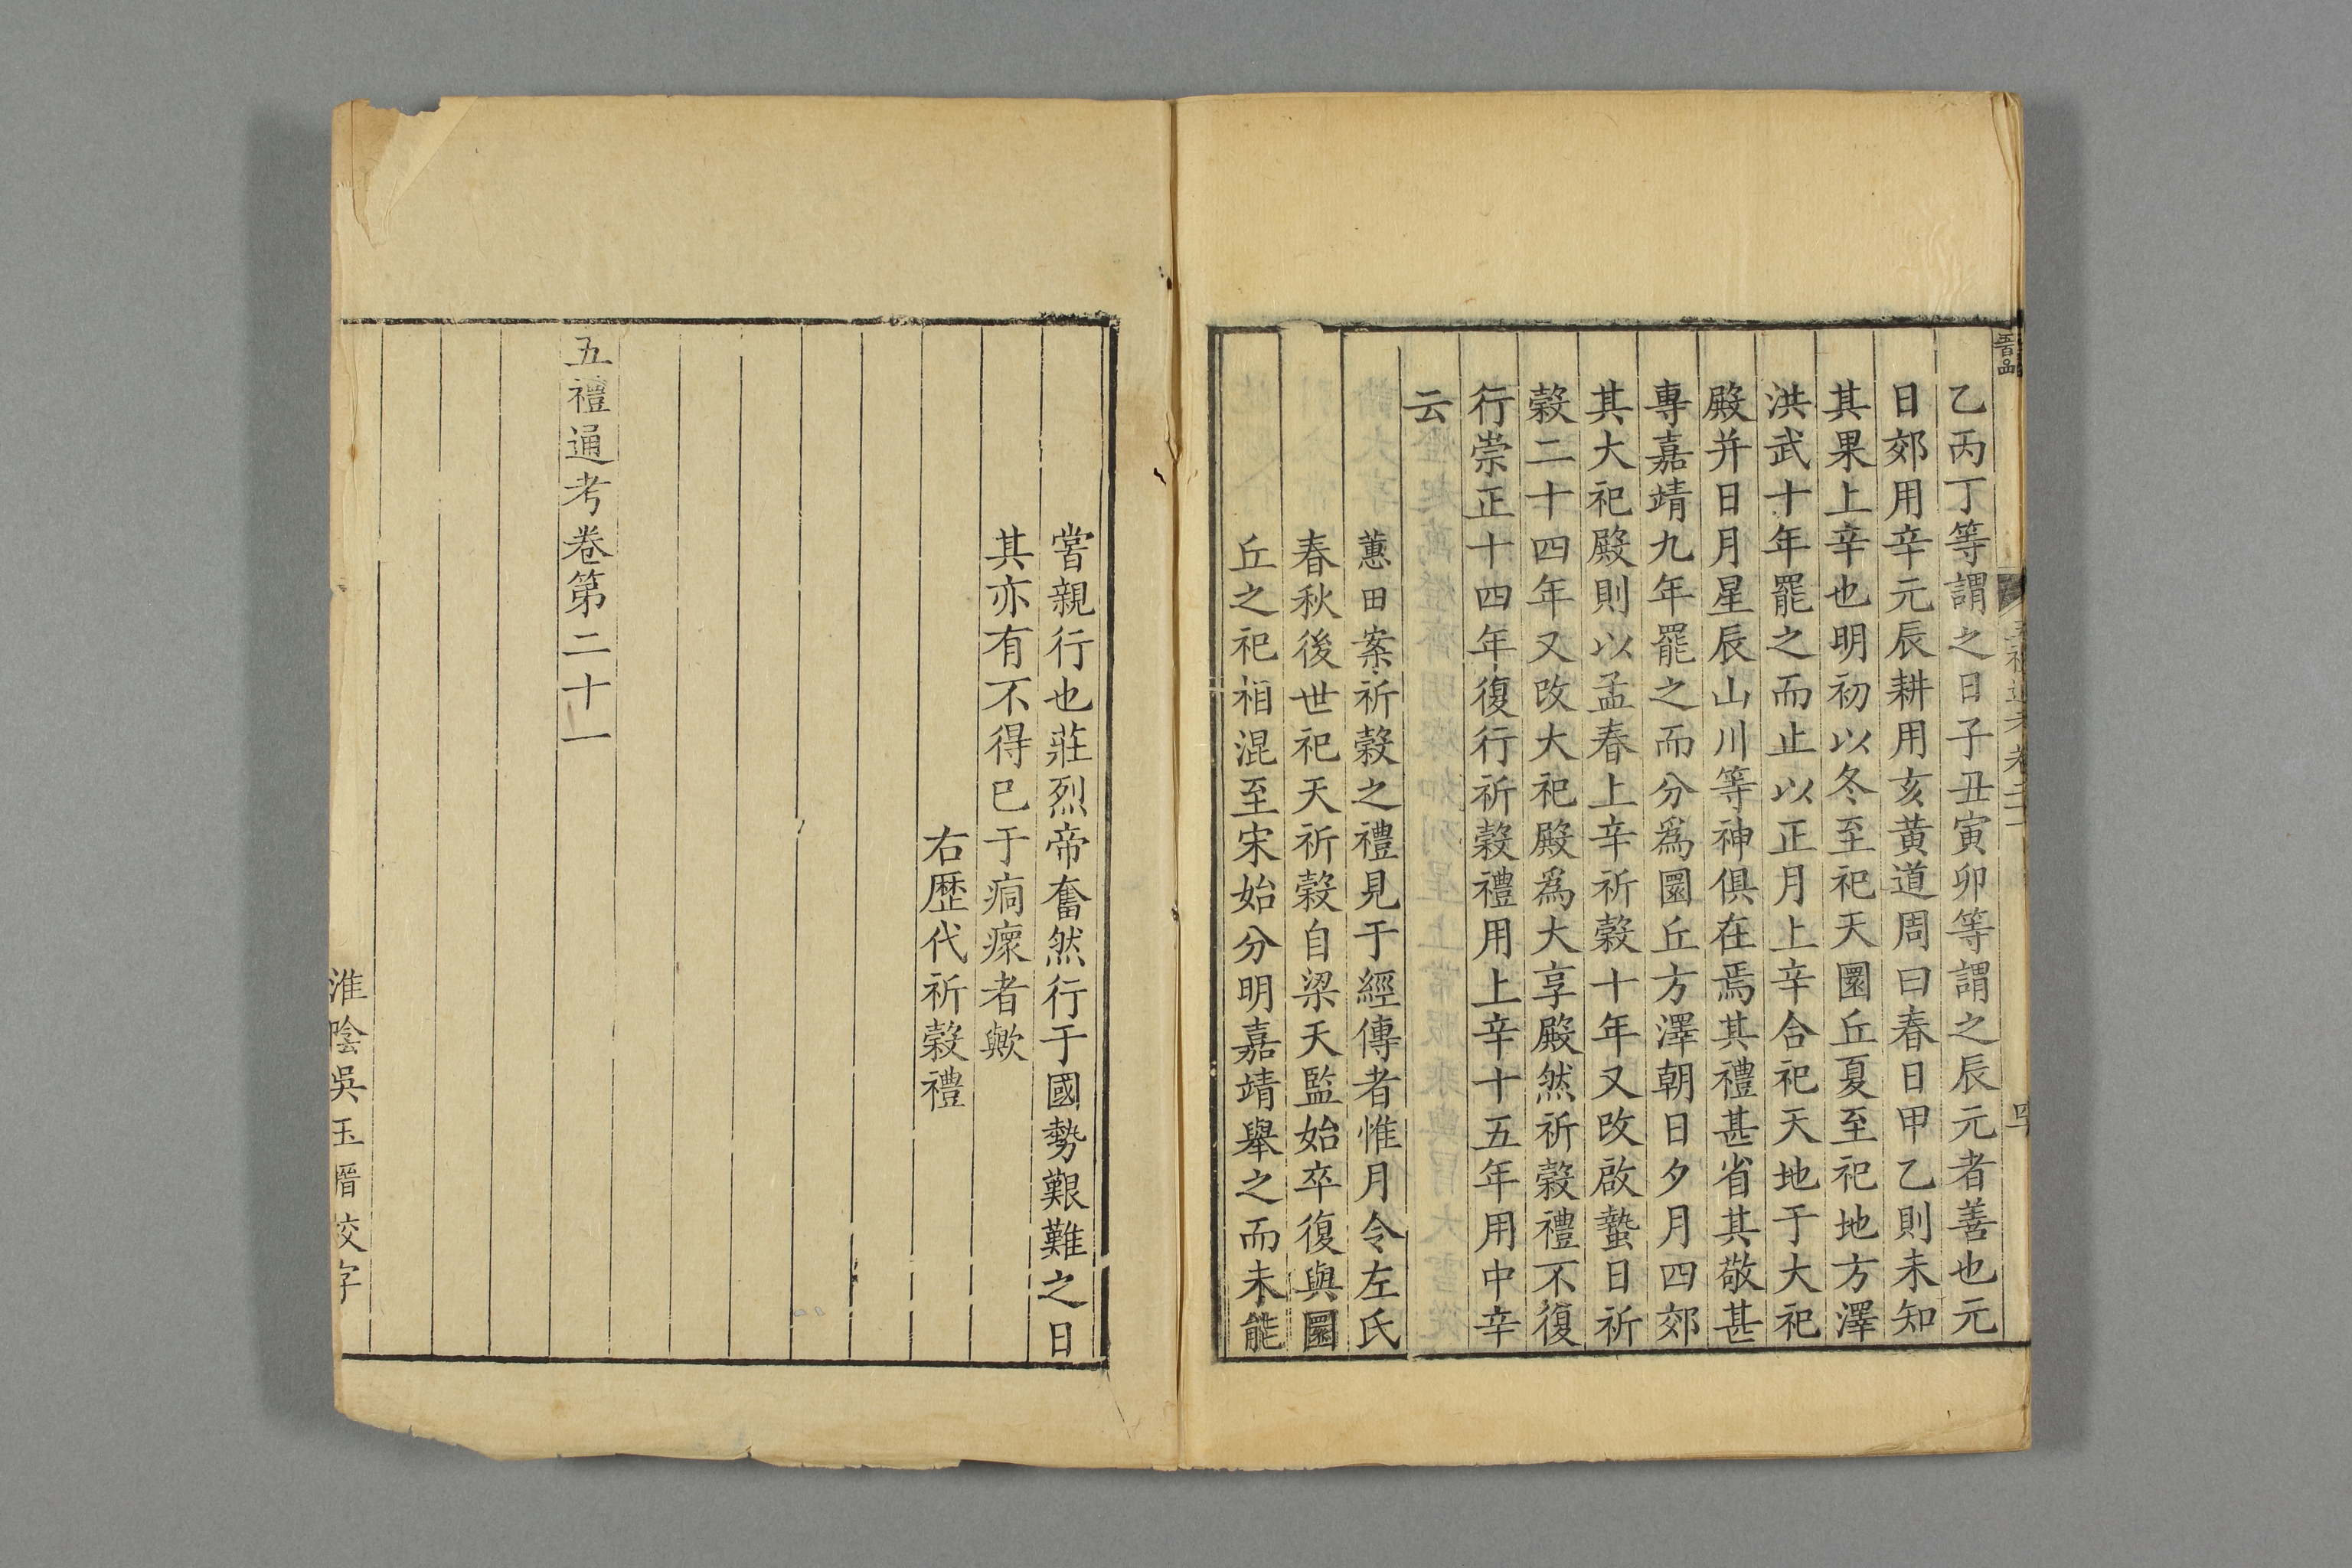 乙丙丁等謂之日子丑寅卯等謂之辰元者善也元
日郊用辛元辰耕用亥黃道周曰春日甲乙則未知
其果上辛也明初以冬至祀天圜丘夏至祀地方澤
洪武十年罷之而止以正月上辛合祀天地于大祀
殿并日月星辰山川等神俱在焉其禮甚省其敬甚
專嘉靖九年罷之而分爲圜丘方澤朝日夕月四郊
其大祀殿則以孟春上辛祈穀十年又改啟蟄日祈
穀二十四年又改大祀殿爲大享殿然祈穀禮不復
行崇正十四年復行祈穀禮用上辛十五年用中辛
云
蕙田案祈穀之禮見于經傳者惟月令左氏
春秋後世祀天祈穀自梁天監始卒復與圜
丘之祀相混至宋始分明嘉靖舉之而未能
嘗親行也莊烈帝奮然行于國勢艱難之日
其亦有不得已于痌瘝者歟
右歷代祈穀禮
五禮通考卷第二十一
淮陰吳玉搢校字